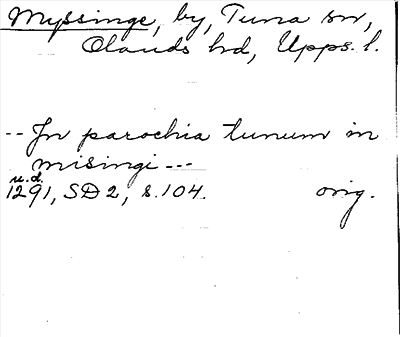 Myssinge, by, Tuna sn,
Olands hd, Upps. l.
-- In parochia tunum in
misingi ---
u.d.
1291, SD 2, s. 104. orig.